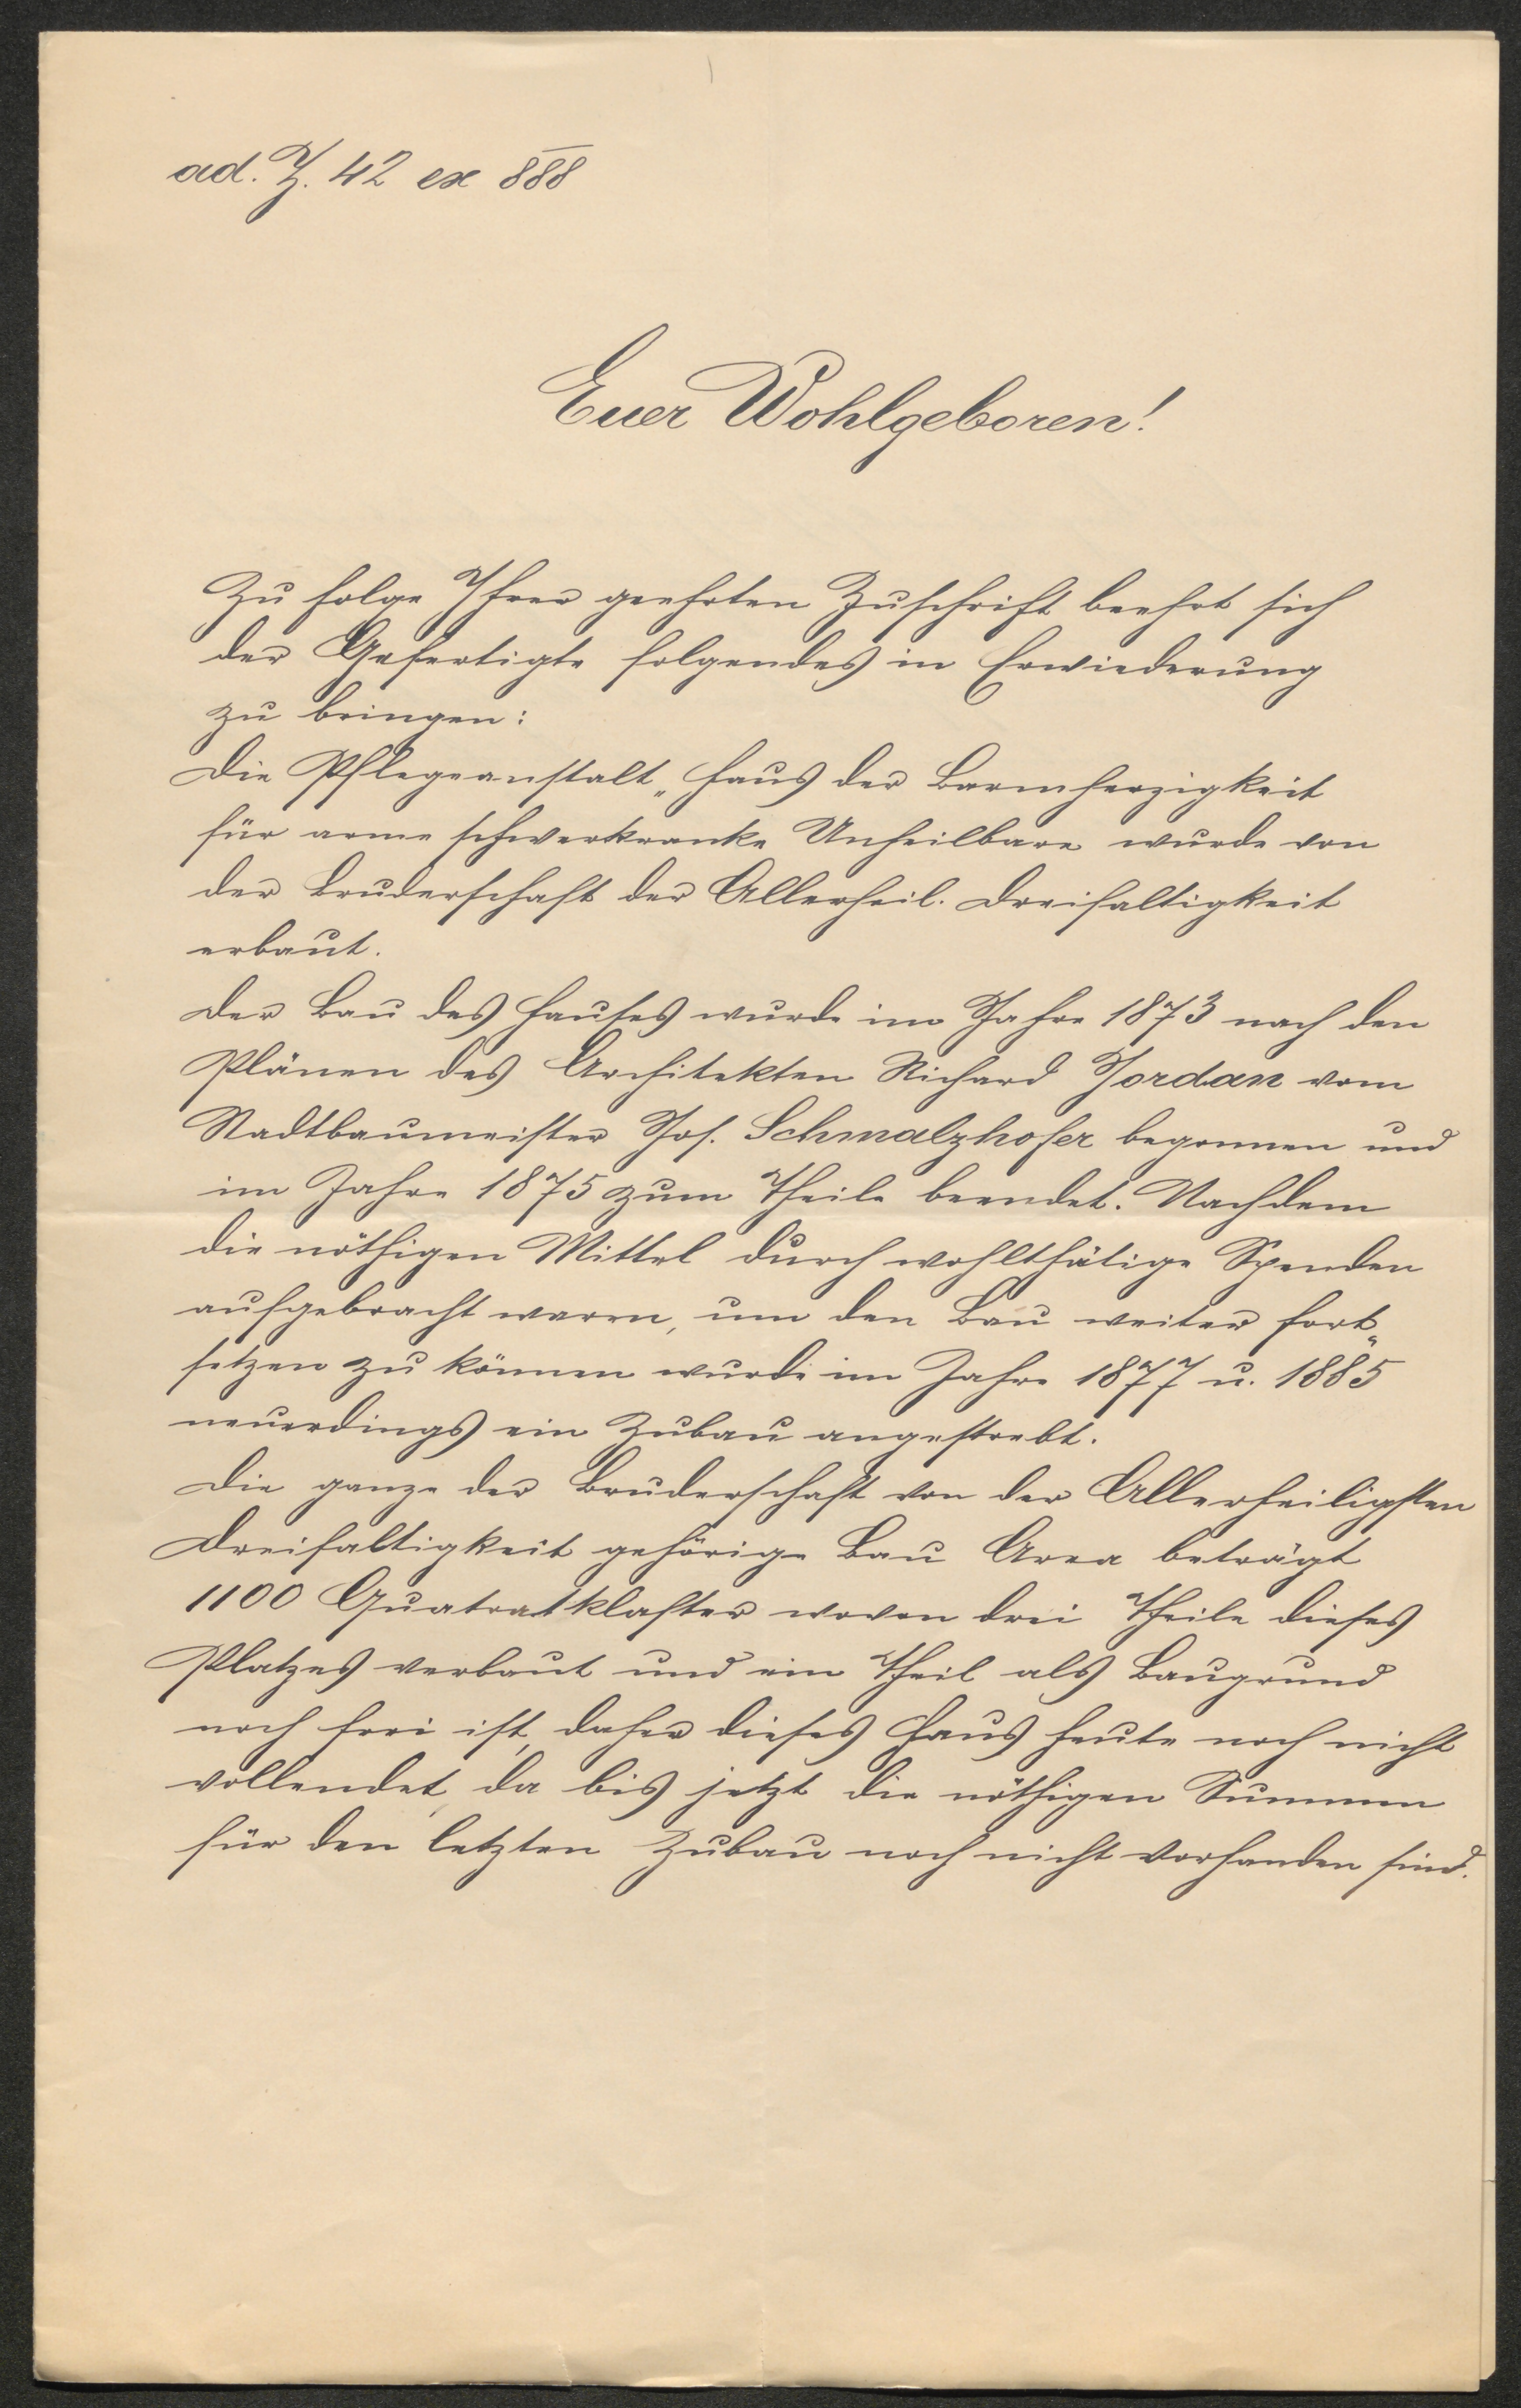 ad. Z. 42 ex 888
Euer Wohlgeboren!
Zu folge Ihrer geehrten Zuschrift beehrt sich
der Gefertigte folgendes in Erwiederung
zu bringen:
Die Pflegeanstalt „Haus der Barmherzigkeit
für arme schwerkranke Unheilbare wurde von
der Bruderschaft der Allerheil. Dreifaltigkeit
erbaut.
Der Bau des Hauses wurde im Jahre 1873 nach den
Plänen des Architekten Richard Jordan vom
Stadtbaumeister Jos. Schmalzhofer begonnen und
im Jahre 1875 zum Theile beendet. Nachdem
die nöthigen Mittel durch wohlthätige Spenden
aufgebracht waren, um den Bau weiter fort„
setzen zu können wurde im Jahre 1877 u. 1885
neuerdings ein Zubau angestrebt.
Die ganze der Bruderschaft von der Allerheiligsten
Dreifaltigkeit gehörige Bau Area beträgt
1100 Quatratklafter wovon drei Theile dieses
Platzes verbaut und ein Theil als Baugrund
noch frei ist, daher dieses Haus heute noch nicht
vollendet, da bis jetzt die nöthigen Summen
für den letzten Zubau noch nicht vorhanden sind.